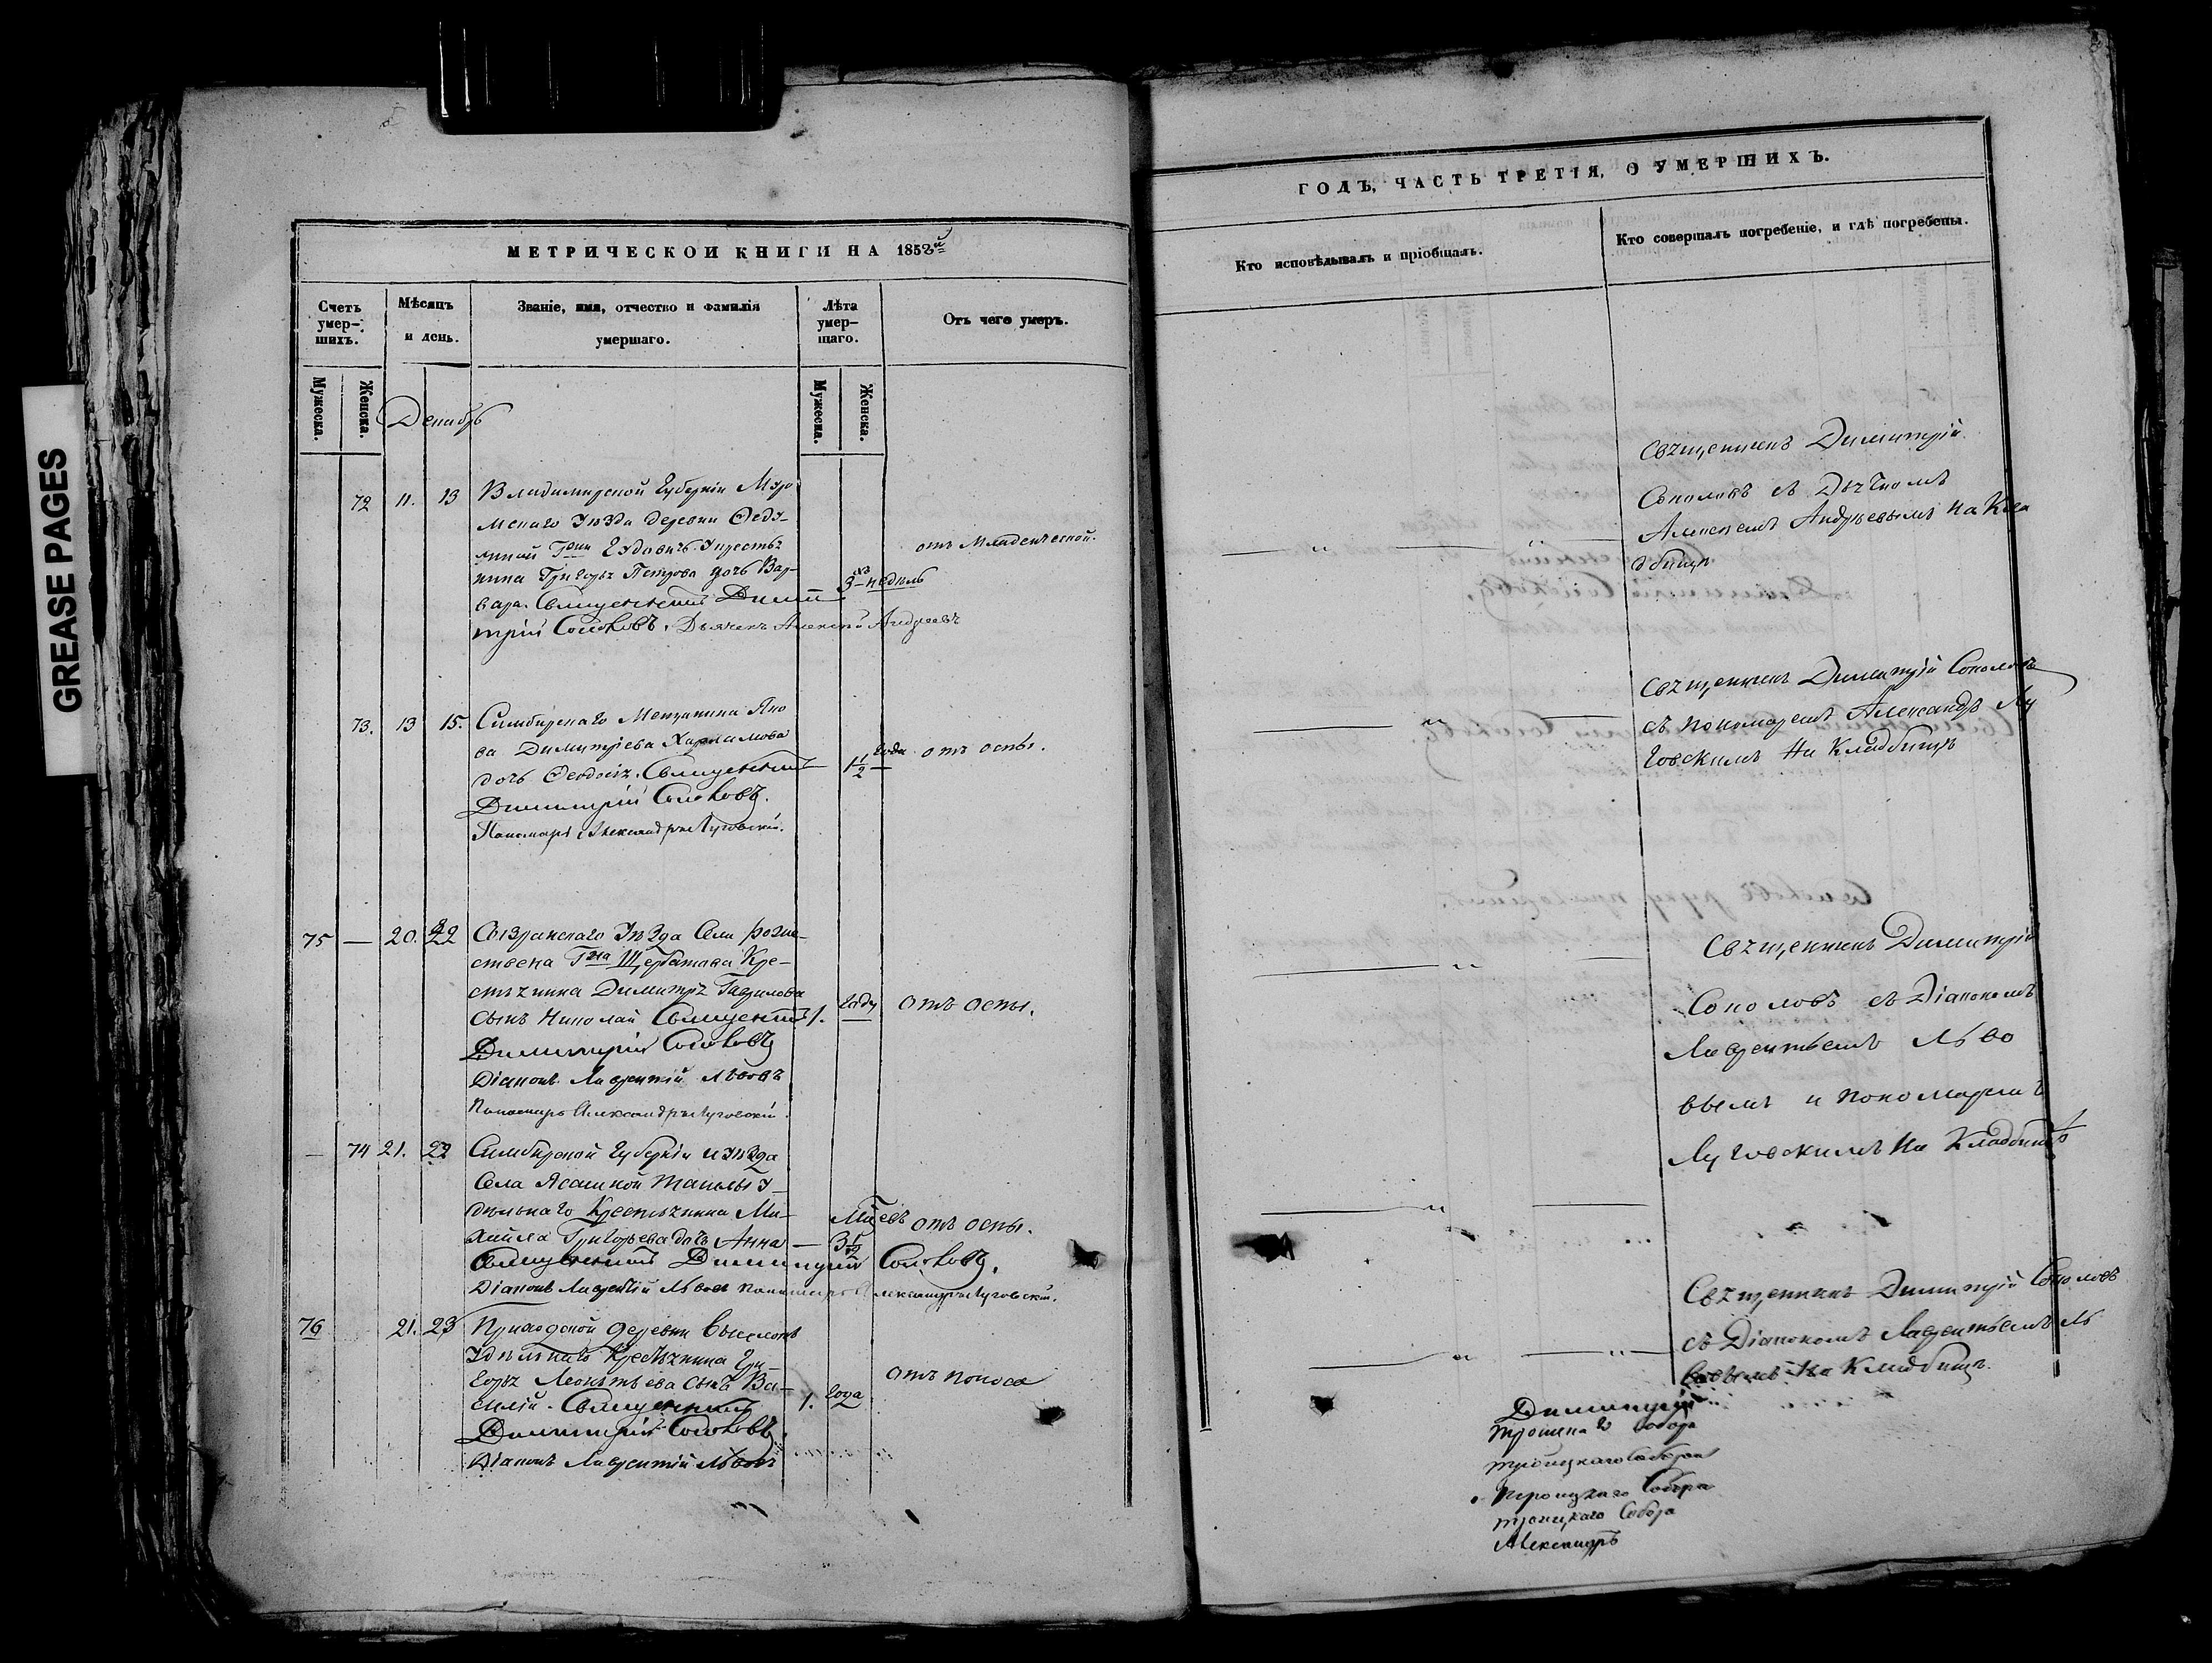 GREASE PAGES
МЕТРИЧЕСКОЙ КНИГИ НА 1852й
Счетъ умер-шихъ.
Мѣсяцъ и день.
Званіе, имя, отчество и фамилія умершаго.
Лѣта умер-шаго.
Отъ чего умеръ.
Мужеска.
Женска.
Мужеска.
Женска.
Декабрь
72 11. 13 Владимирской Губерніи Муро
мскаго Уѣзда деревни Феду-
Григорья Петрова дочь Вар-
вара. Священникъ Дими
трій Соколовъ. Дьячекъ Алексѣй Андреевъ
3хъ недѣль
отъ младенческой.
73. 13 15. Симбирскаго Мещанина Яко
ва Димитріева Харламова
дочь Феодосія. Священникъ
Димитрій Соколовъ.
Пономарь Александръ Луговскій.
1 1/2 года отъ оспы.
75 — 20. 22 Сызранскаго Уѣзда Села рожде-
ствена Гна Щербатова Кре-
стьянина Димитрія Гаврилова
сынъ Николай Священникъ
Димитрій Соколовъ
Діаконъ Лаврентій Львовъ
Пономарь Александръ Луговскій.
1. году отъ оспы.
— 74 21. 22 Симбирской Губерніи и уѣзда
Села Ясашной Ташлы У-
дѣльнаго Крестьянина Ми-
хайла Григорьева дочь Анна —
Священникъ Димитрій Соколовъ.
Діаконъ Лаврентій Львовъ Пономарь Александръ Луговскій.
отъ оспы.
76 21. 23 Приходской деревни Выселокъ
Удѣльнаго Крестьянина Гри-
горья Леонтьева сынъ Ва-
силій. Священникъ
Димитрій Соколовъ.
Діаконъ Лаврентій Львовъ
1. года
отъ поноса
ГОДЪ, ЧАСТЬ ТРЕТІЯ, О УМЕРШИХЪ.
Кто исповѣдывалъ и пріобщалъ.
Кто совершалъ погребеніе, и гдѣ погребены.
Священникъ Димитрій
Соколовъ съ Дьячкомъ
Алексѣемъ Андреевымъ на Кла
дбищѣ
Священникъ Димитрій Соколовъ
съ пономаремъ Александръ Лу
говскимъ на Кладбищѣ
Священникъ Димитрій
Соколовъ съ Діакономъ
Лаврентьемъ Льво
вымъ и пономаремъ
Луговскимъ на Кладбищѣ
Священникъ Димитрій Соколовъ
съ Діакономъ Лаврентьемъ Ль
вовымъ на Кладбищѣ.
Димитрій
троицкаго собора
троицкаго собора
Троицкаго Собора
троицкаго Собора
Александръ